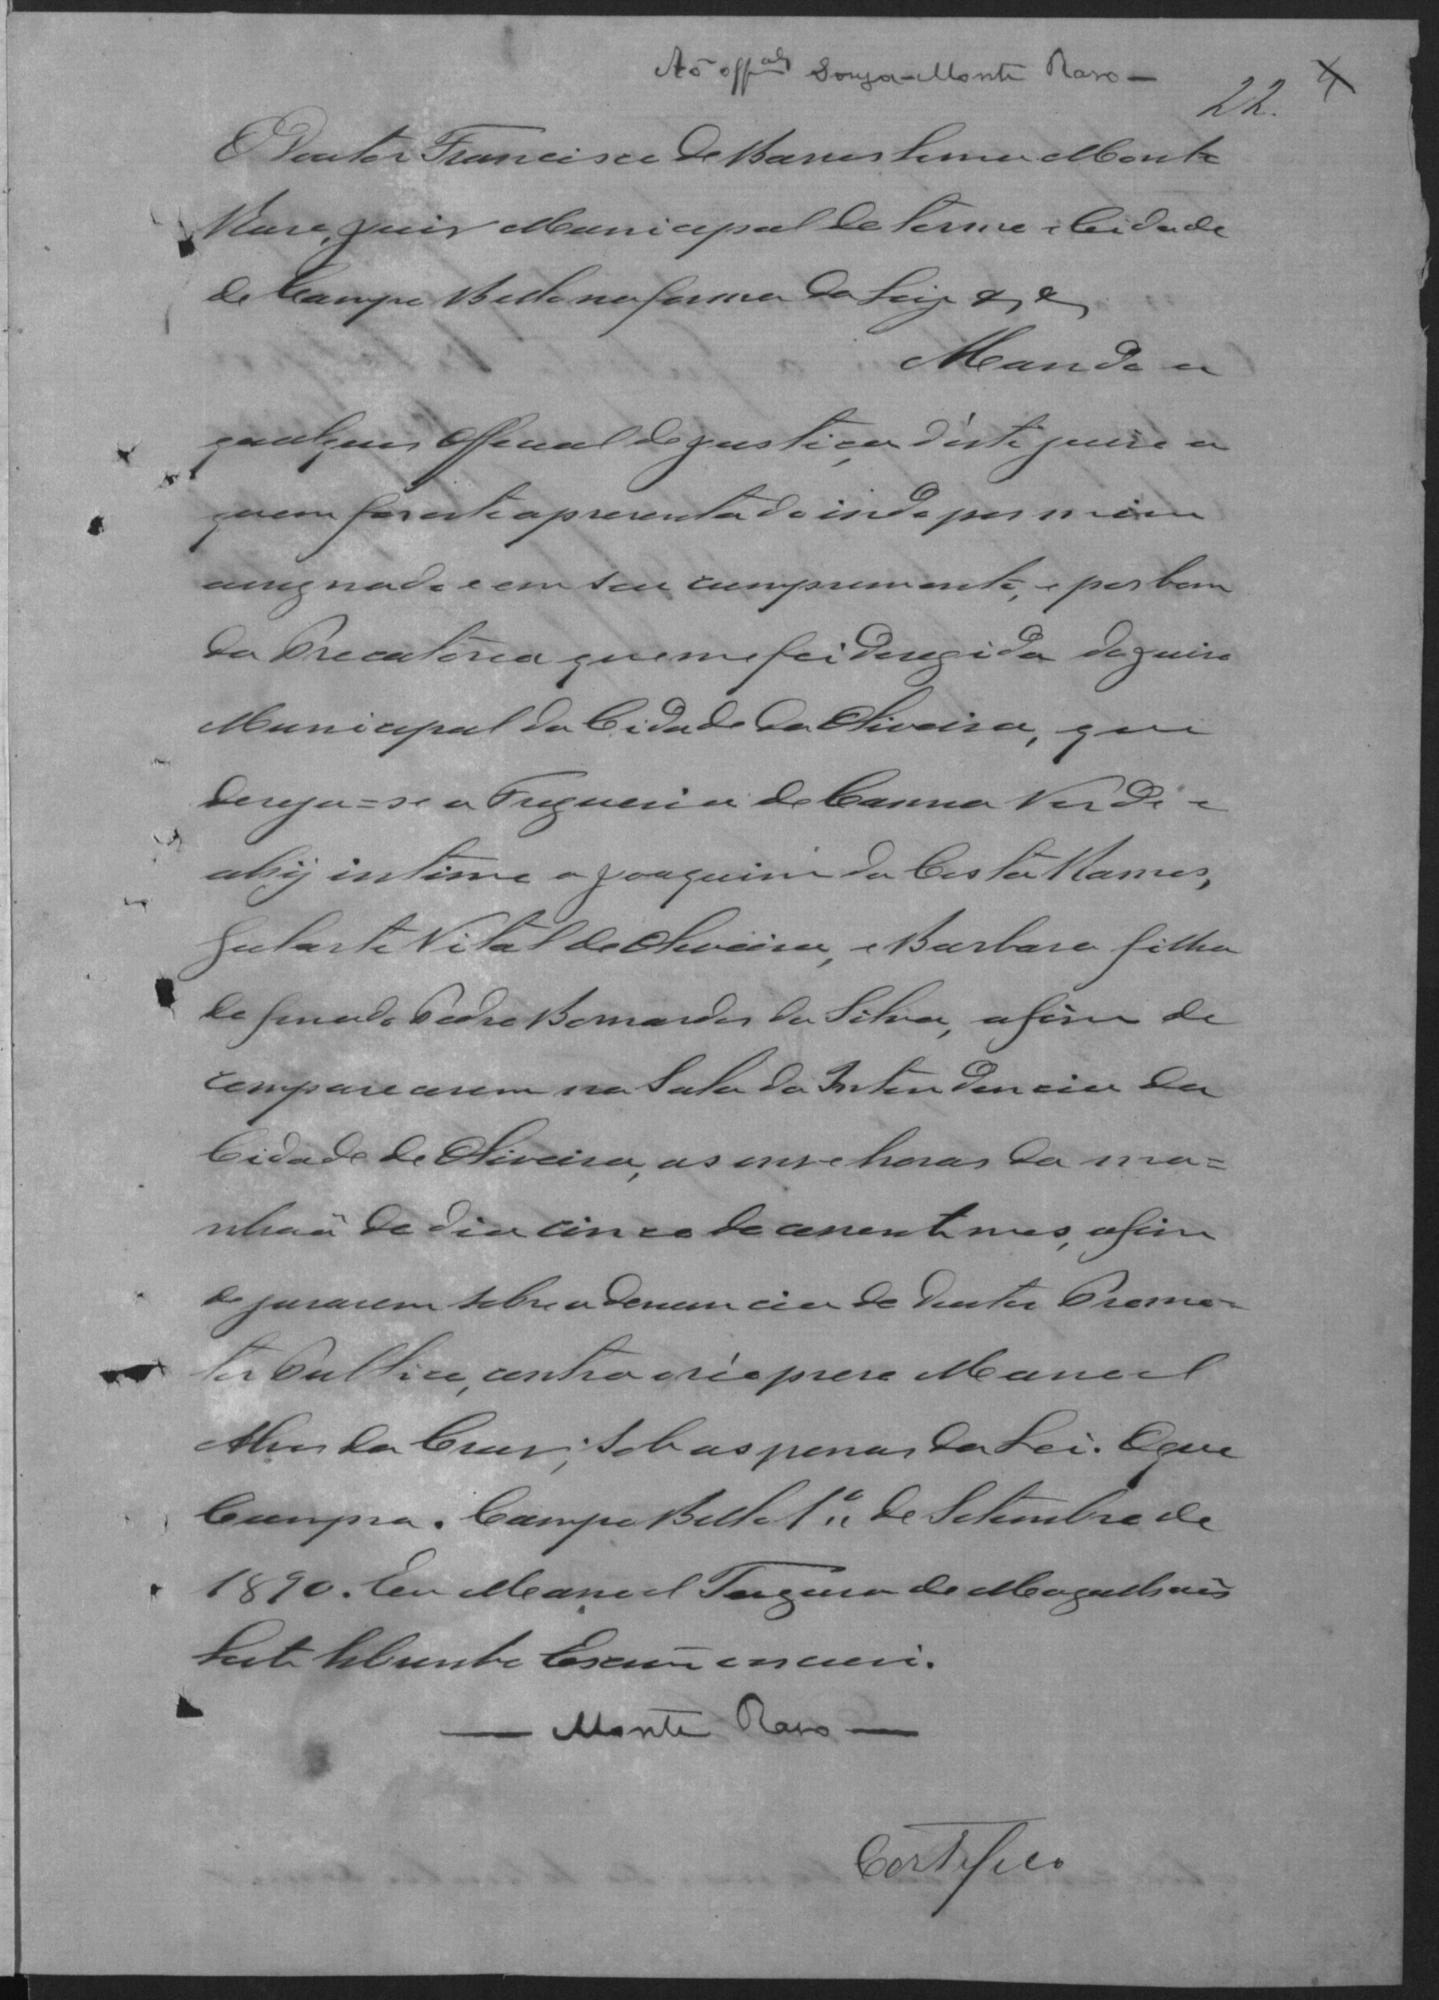 Ao offal Souza - Monte Raso -
22. 4
O Doutor Francisco de Barros Lima Monte
Raso, Juiz Municipal do termo e Cidade
de Campo Bello na forma da Lei &, &
Mando a
qualquer Official de justiça d'este juizo a
quem for este apresentado indo por mim
assignado e em seu cumprimento, e por bem
da Precatoria que me foi deregida do juizo
Municipal da Cidade da Oliveira, que
dereja=se a Freguesia de Canna Verde e
ahij intime a Joaquim da Costa Ramos,
Gularte Vital de Oliveira, e Barbara filha
do finado Pedro Bernardes da Silva, afim de
comparecerem na Sala da Intendencia da
Cidade de Oliveira, as onze horas da ma=
nhaã do dia cinco do corrente mes, afim
de jurarem sobre a denuncia do Doutor Promo=
tor Publico, contra o réo preso Manoel
Alves da Cruz; sob as penas da Lei. O que
Cumpra. Campo Bello 1º de Setembro de
1890. Eu Manoel de Magalhães
Escrivão escrevi.
— Monte Raso —
Certifico